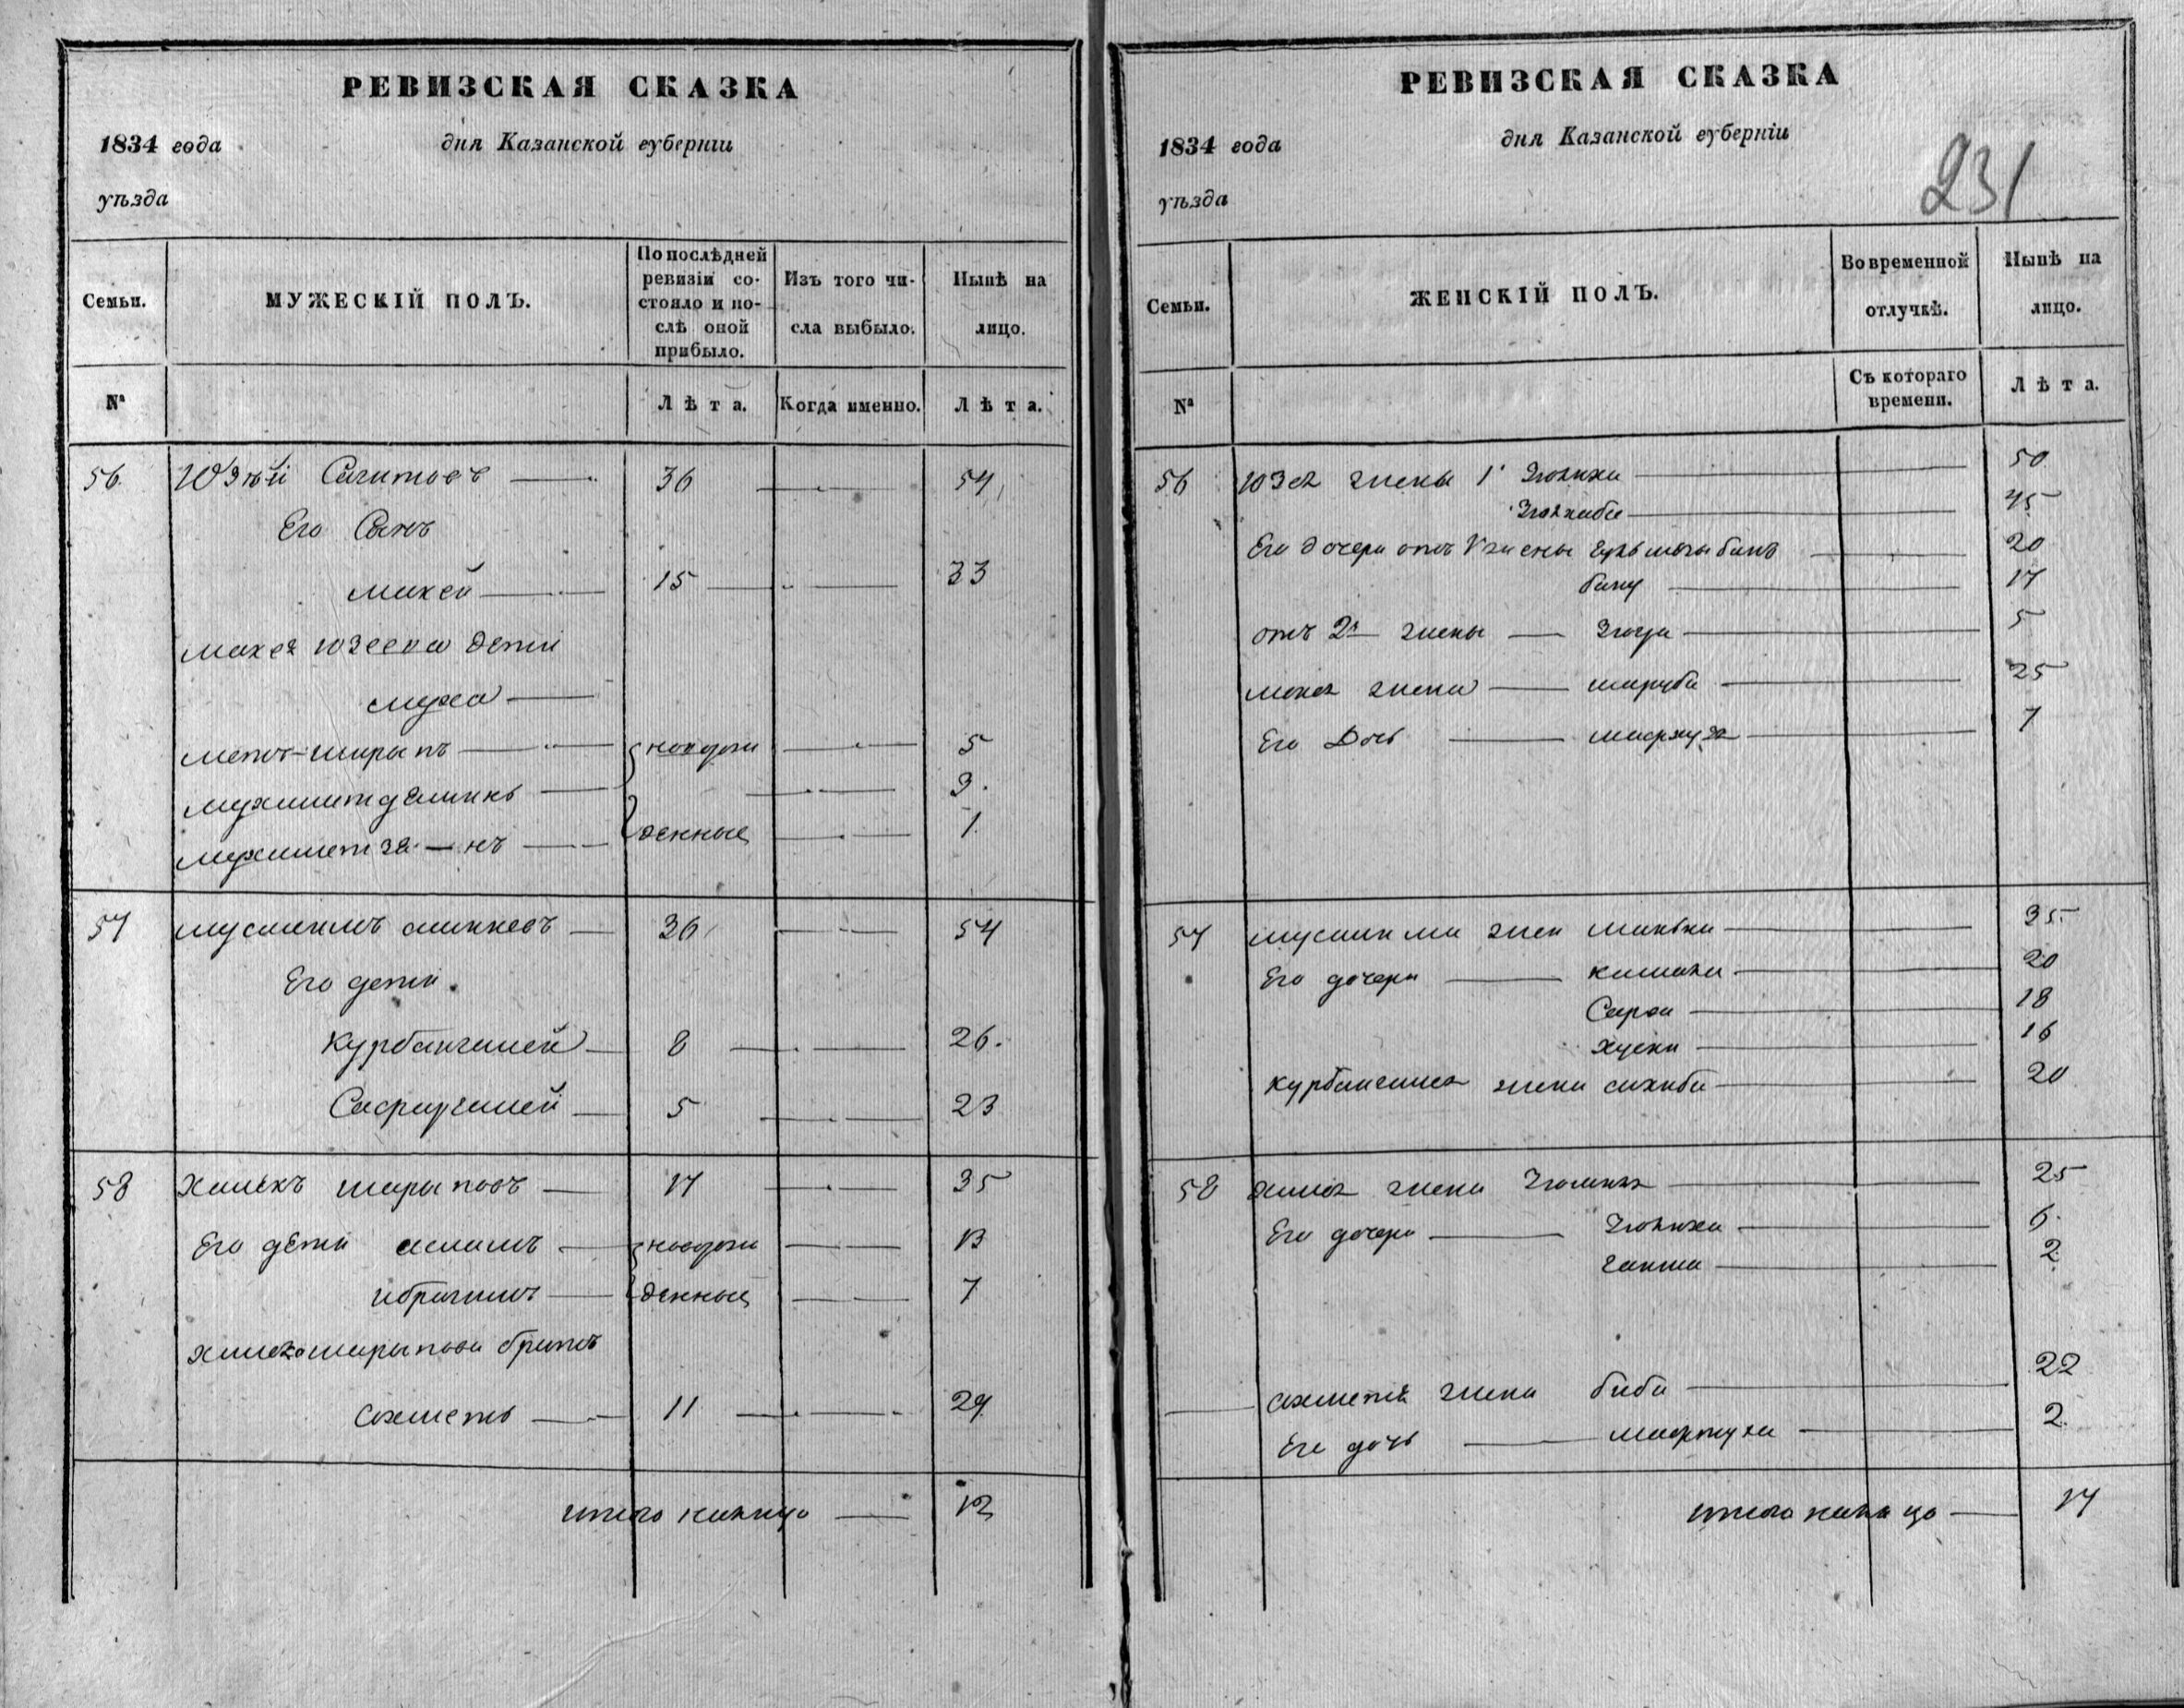 РЕВИЗСКАЯ СКАЗКА
1834 года дня Казанской губерніи
уѣзда
Семьи. МУЖЕСКІЙ ПОЛЪ. По послѣдней ревизіи состояло и послѣ оной прибыло. Изъ того числа выбыло. Нынѣ на лицо.
№ Лѣта. Когда именно. Лѣта.
56 Юзѣй Сагитовъ 36 54
Его Сынъ
макей 15 33
макея юзеева дети
муха
метъ-шарыпъ новорож 5
мухаметдминь 3
мухаметзя-нъ денные 1
57 муслюмъ 36 54
Его дети
Курбангалей 8 26
Сафаргалей 5 23
58 Хамекъ шарыповъ 17 35
Его дети асламъ новорож 13
ибрагимъ денные 7
шарыпова братъ
Сахметь 11 29
итого налицо 12
РЕВИЗСКАЯ СКАЗКА
1834 года дня Казанской губерніи
уѣзда
231
Семьи. ЖЕНСКІЙ ПОЛЪ. Во временной отлучкѣ. Нынѣ на лицо.
№ Съ котораго времени. Лѣта.
56 юзея жены 1 Зюлиха 50
45
Его дочери отъ 1 жены 20
бану 17
отъ 2й жены 5
макея жена шаруба 25
Его Дочь 7
57 жена 35
Его дочери 20
Сара 18
16
курбангалея жена сахиба 20
58 жена 25
Его дочери Зюлиха 6
2
сахметя жена биби 22
Его дочь 2
итого налицо 17